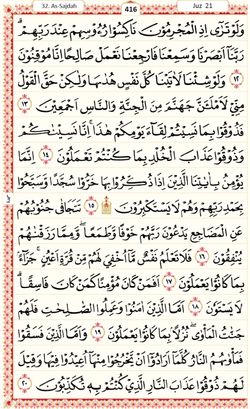 32. As-Sajdah 416 Juz 21
وَلَوْ تَرَىٰٓ إِذِ الْمُجْرِمُونَ نَاكِسُوا۟ رُءُوسِهِمْ عِندَ رَبِّهِمْ
رَبَّنَآ أَبْصَرْنَا وَسَمِعْنَا فَارْجِعْنَا نَعْمَلْ صَالِحًا إِنَّا مُوقِنُونَ
١٢ وَلَوْ شِئْنَا لَءَاتَيْنَا كُلَّ نَفْسٍ هُدَىٰهَا وَلَٰكِنْ حَقَّ الْقَوْلُ
مِنِّى لَأَمْلَأَنَّ جَهَنَّمَ مِنَ الْجِنَّةِ وَالنَّاسِ أَجْمَعِينَ ١٣
فَذُوقُوا۟ بِمَا نَسِيتُمْ لِقَآءَ يَوْمِكُمْ هَٰذَآ إِنَّا نَسِينَٰكُمْ
وَذُوقُوا۟ عَذَابَ الْخُلْدِ بِمَا كُنتُمْ تَعْمَلُونَ ١٤ إِنَّمَا
يُؤْمِنُ بِـَٔايَٰتِنَا الَّذِينَ إِذَا ذُكِّرُوا۟ بِهَا خَرُّوا۟ سُجَّدًا وَسَبَّحُوا۟
بِحَمْدِ رَبِّهِمْ وَهُمْ لَا يَسْتَكْبِرُونَ ١٥ تَتَجَافَىٰ جُنُوبُهُمْ
عَنِ الْمَضَاجِعِ يَدْعُونَ رَبَّهُمْ خَوْفًا وَطَمَعًا وَمِمَّا رَزَقْنَٰهُمْ
يُنفِقُونَ ١٦ فَلَا تَعْلَمُ نَفْسٌ مَّآ أُخْفِىَ لَهُم مِّن قُرَّةِ أَعْيُنٍ جَزَآءًۢ
بِمَا كَانُوا۟ يَعْمَلُونَ ١٧ أَفَمَن كَانَ مُؤْمِنًا كَمَن كَانَ فَاسِقًا
لَّا يَسْتَوُۥنَ ١٨ أَمَّا الَّذِينَ ءَامَنُوا۟ وَعَمِلُوا۟ الصَّٰلِحَٰتِ فَلَهُمْ
جَنَّٰتُ الْمَأْوَىٰ نُزُلًۢا بِمَا كَانُوا۟ يَعْمَلُونَ ١٩ وَأَمَّا الَّذِينَ فَسَقُوا۟
فَمَأْوَىٰهُمُ النَّارُ كُلَّمَآ أَرَادُوٓا۟ أَن يَخْرُجُوا۟ مِنْهَآ أُعِيدُوا۟ فِيهَا وَقِيلَ
لَهُمْ ذُوقُوا۟ عَذَابَ النَّارِ الَّذِى كُنتُم بِهِۦ تُكَذِّبُونَ ٢٠